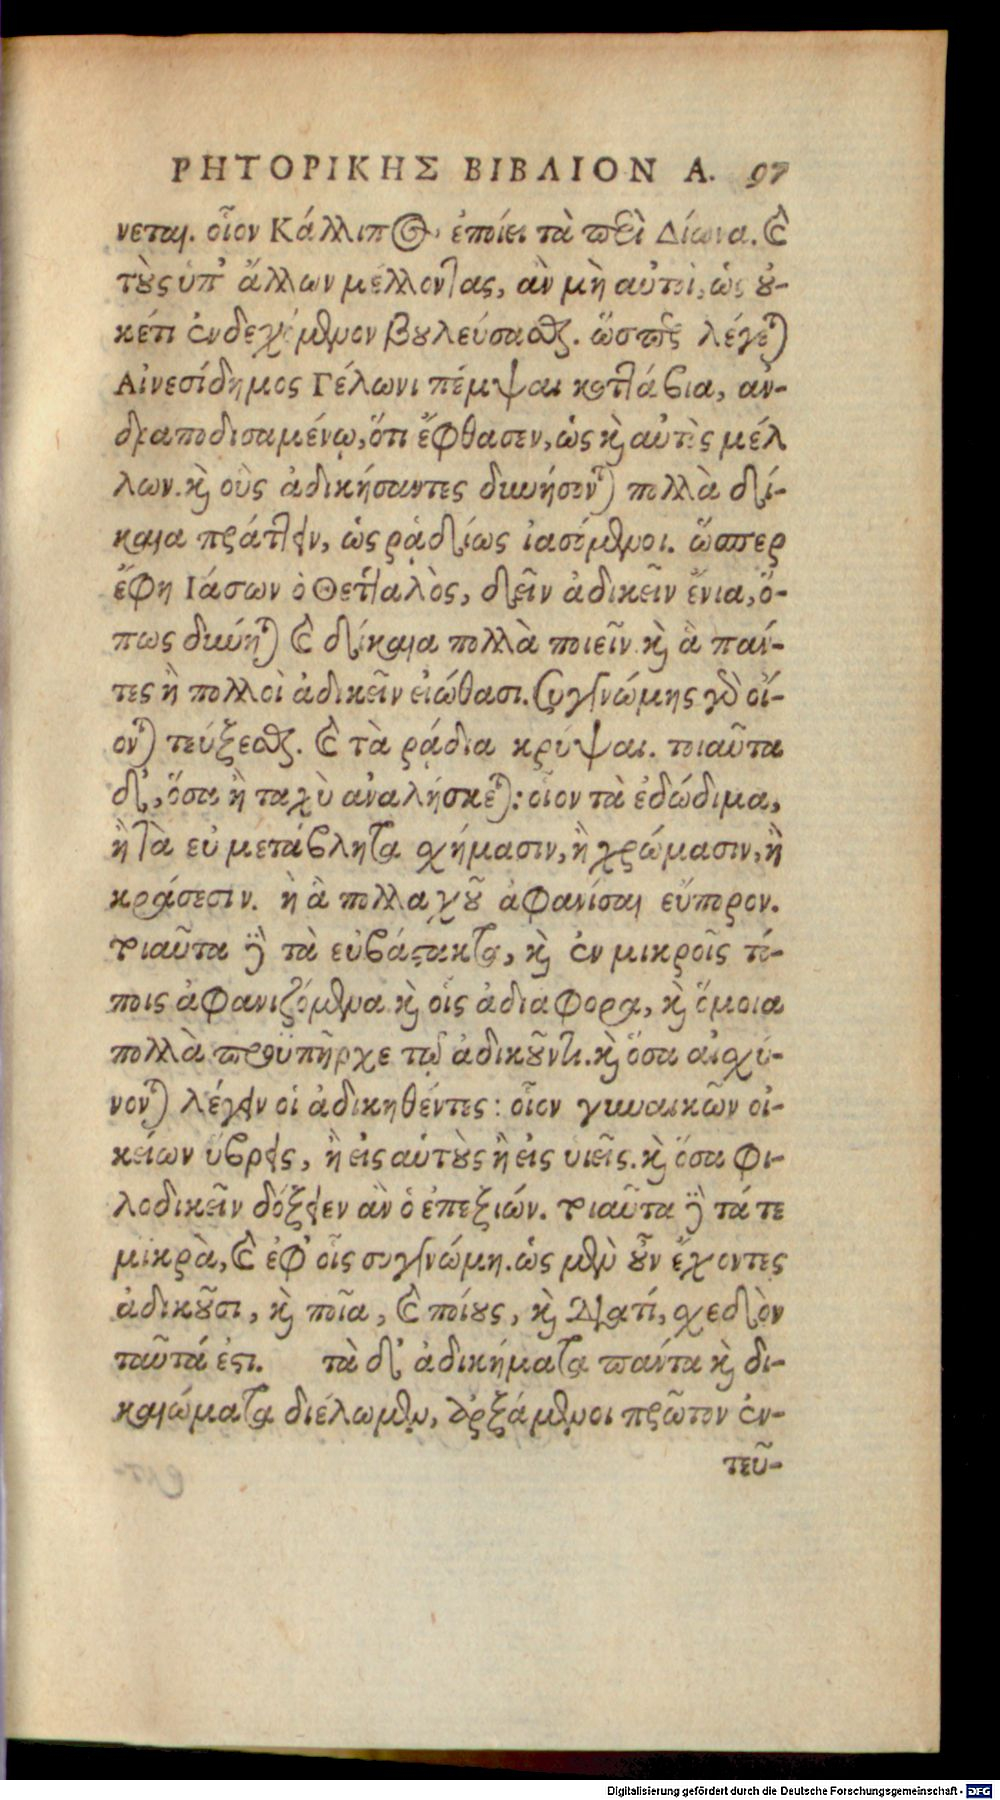 ΡΗΤΟΡΙΚΗΣ ΒΙΒΛΙΟΝ Α. 97
νεται. οἷον Κάλλιπος ἐποίει τὰ περὶ Δίωνα. καὶ
τοὺς ὑπ' ἄλλων μέλλοντας, ἂν μὴ αὐτοὶ, ὡς οὐ-
κέτι ἐνδεχόμενον βουλεύσασθαι. ὥσπερ λέγεται
Αἰνεσίδημος Γέλωνι πέμψαι κοττάβια, ἀν-
δραποδισαμένῳ, ὅτι ἔφθασεν, ὡς καὶ αὐτὸς μέλ
λων. καὶ οὓς ἀδικήσαντες δυνήσονται πολλὰ δί-
καια πράττειν, ὡς ῥᾳδίως ἰασόμενοι. ὥσπερ
ἔφη Ιάσων ὁ Θετταλὸς, δεῖν ἀδικεῖν ἔνια, ὅ-
πως δύνηται καὶ δίκαια πολλὰ ποιεῖν. καὶ ἃ πάν-
τες ἢ πολλοὶ ἀδικεῖν εἰώθασι. συγγνώμης γὰρ οἴ-
ονται τεύξεσθαι. καὶ τὰ ῥᾴδια κρύψαι. τοιαῦτα
δ', ὅσα ἢ ταχὺ ἀναλίσκεται: οἷον τὰ ἐδώδιμα,
ἢ τὰ εὐμετάβλητα σχήμασιν, ἢ χρώμασιν, ἢ
κράσεσιν. ἢ ἃ πολλαχοῦ ἀφανίσαι εὔπορον.
τοιαῦτα δὲ τὰ εὐβάστακτα, καὶ ἐν μικροῖς τό-
ποις ἀφανιζόμενα καὶ οἷς ἀδιάφορα, καὶ ὅμοια
πολλὰ προϋπῆρχε τῷ ἀδικοῦντι. καὶ ὅσα αἰσχύ-
νονται λέγειν οἱ ἀδικηθέντες: οἷον γυναικῶν οἰ-
κείων ὕβρεις, ἢ εἰς αὑτοὺς ἢ εἰς υἱεῖς. καὶ ὅσα φι-
λοδικεῖν δόξειεν ἂν ὁ ἐπεξιών. τοιαῦτα δὲ τά τε
μικρὰ, καὶ ἐφ' οἷς συγγνώμη. ὡς μὲν οὖν ἔχοντες
ἀδικοῦσι, καὶ ποῖα, καὶ ποίους, καὶ διατί, σχεδὸν
ταῦτά ἐστι. τὰ δ' ἀδικήματα πάντα καὶ δι-
καιώματα διέλωμεν, ἀρξάμενοι πρῶτον ἐν-
τεῦ-
Digitalisierung gefördert durch die Deutsche Forschungsgemeinschaft - DFG